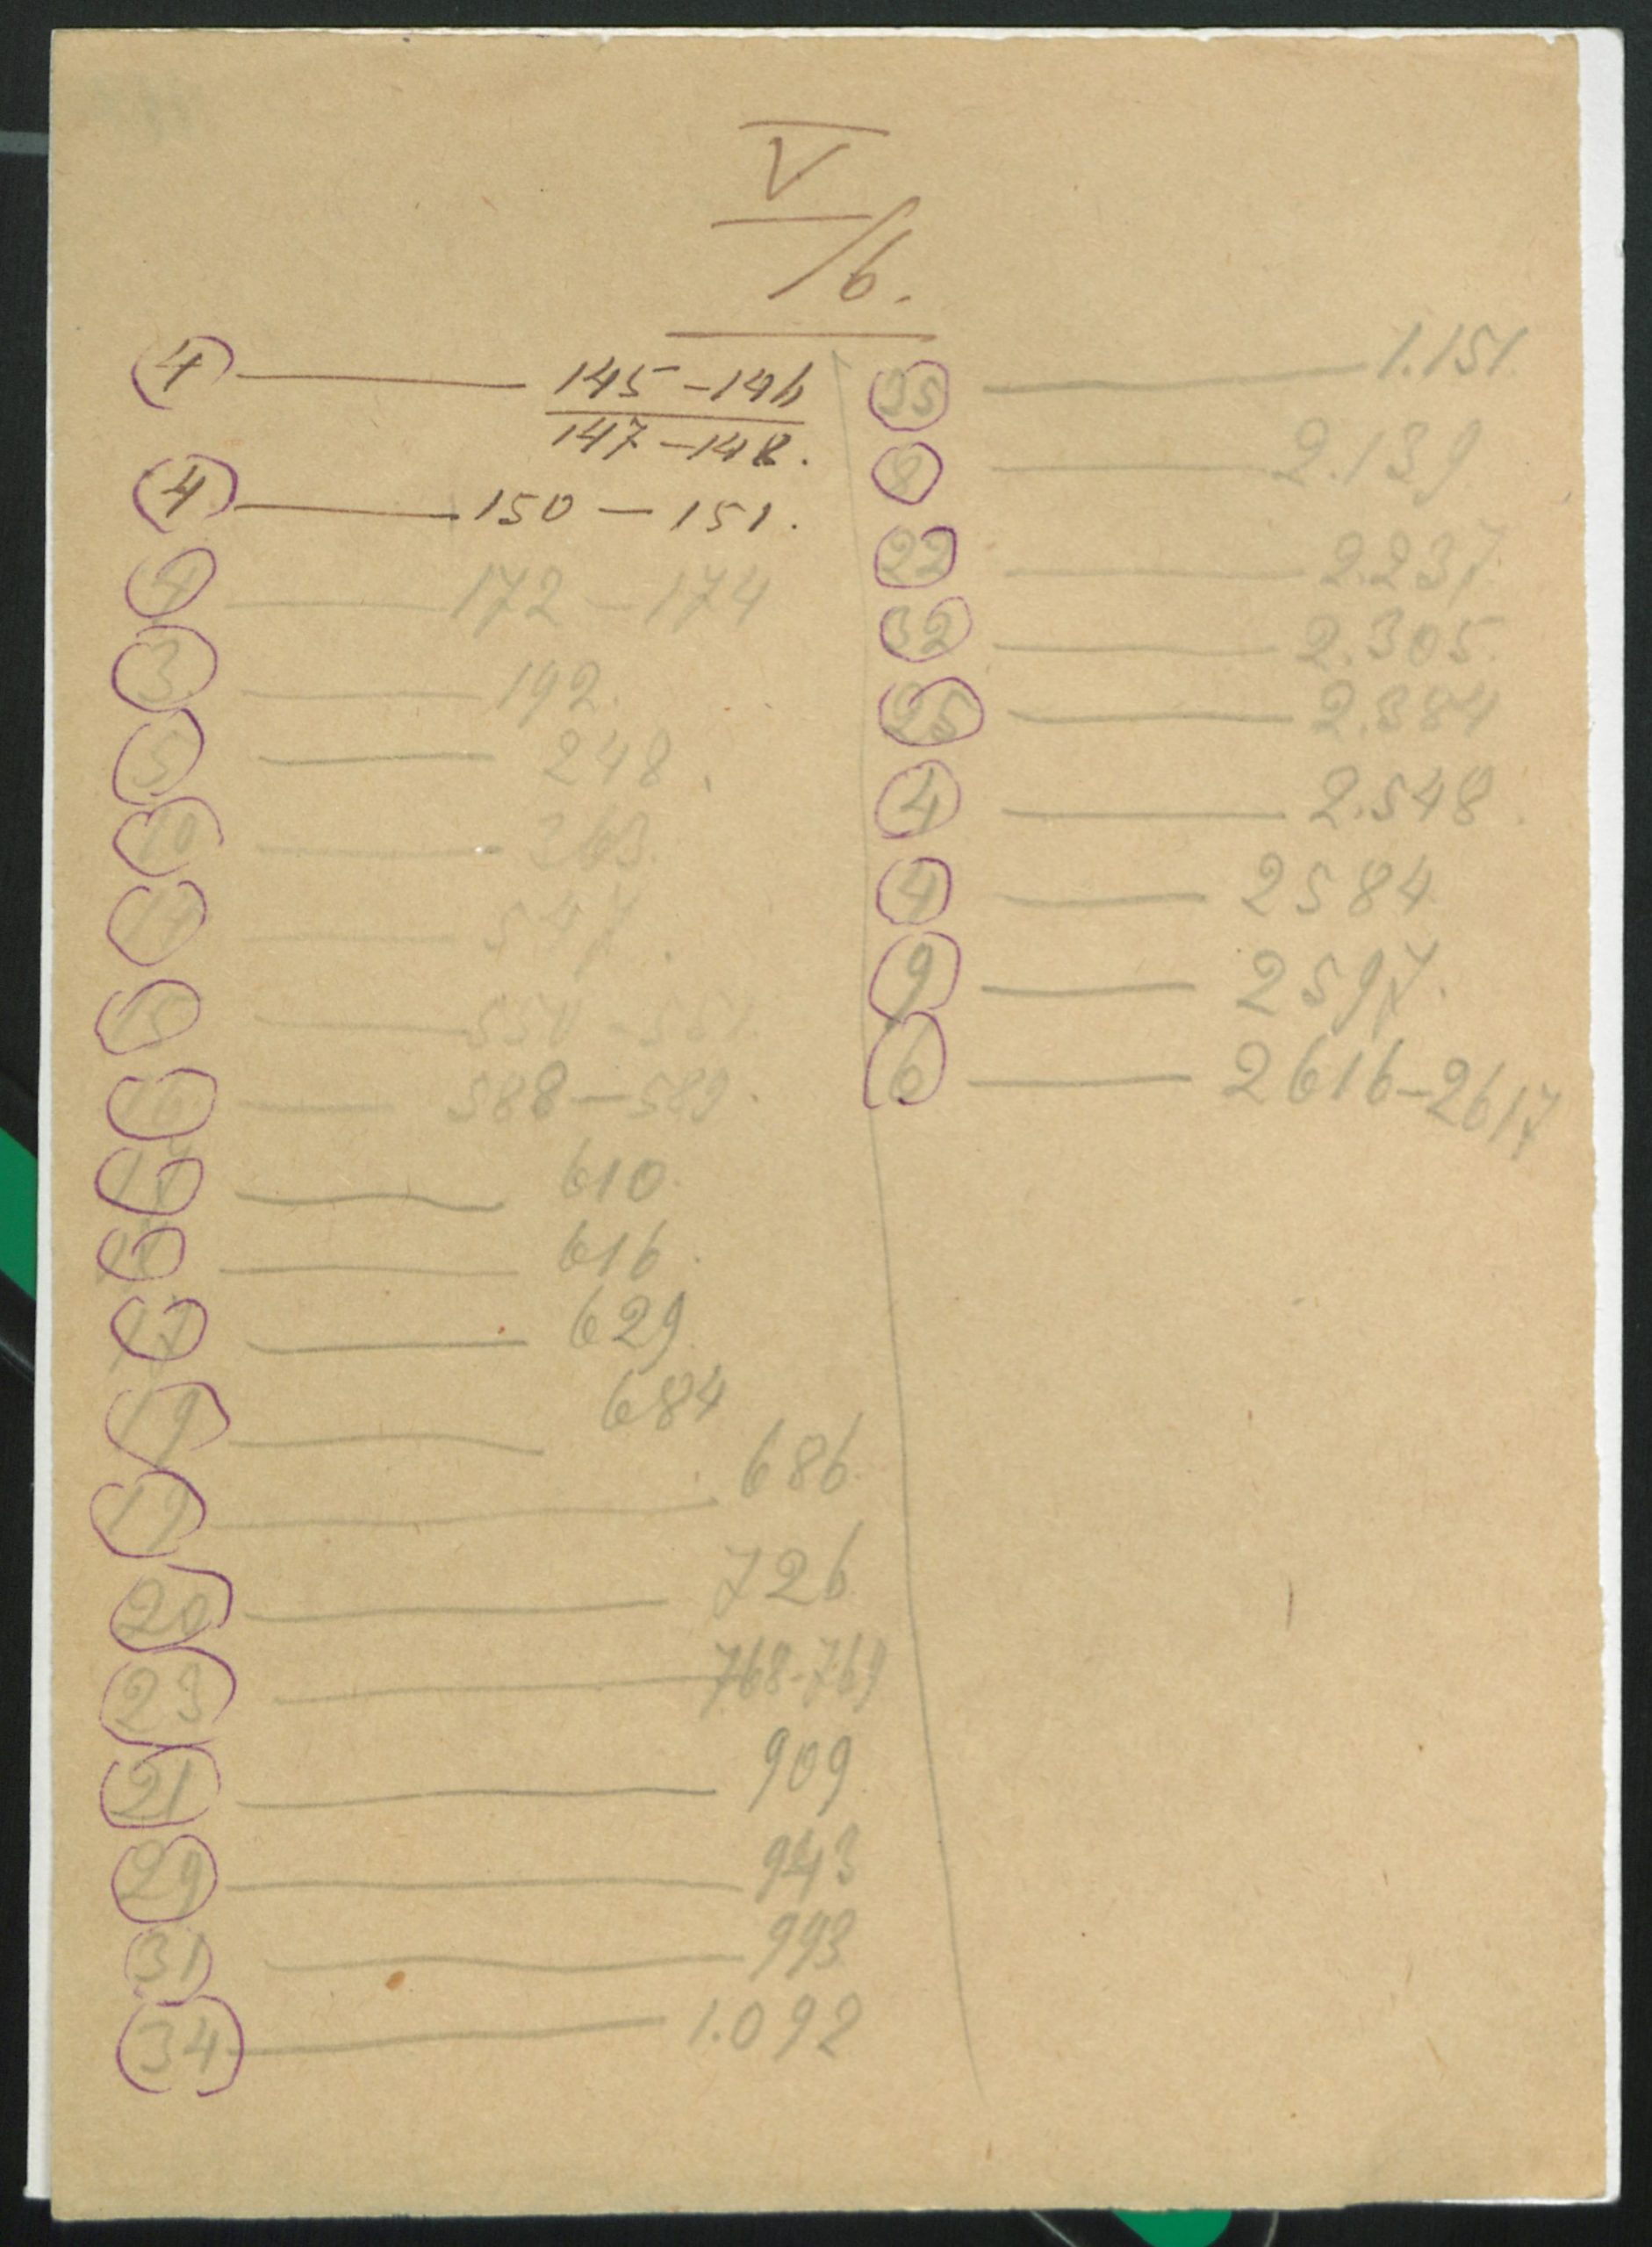 V
/6.
4 — 145-146
147-148.
4 — 150-151.
4 — 172-174
3 — 192.
5 — 248.
10 — 363.
14 — 547.
15 — 550-551.
16 — 588-589.
17 — 610.
616.
17 — 629.
19 — 684
19 — 686.
20 — 726
23 — 768-769
21 — 909.
29 — 943
31 — 993
34 — 1.092
35 — 1.151.
8 — 2.139.
22 — 2.237.
32 — 2.305.
25 — 2.384
4 — 2.548.
4 — 2584
9 — 2597.
6 — 2616-2617